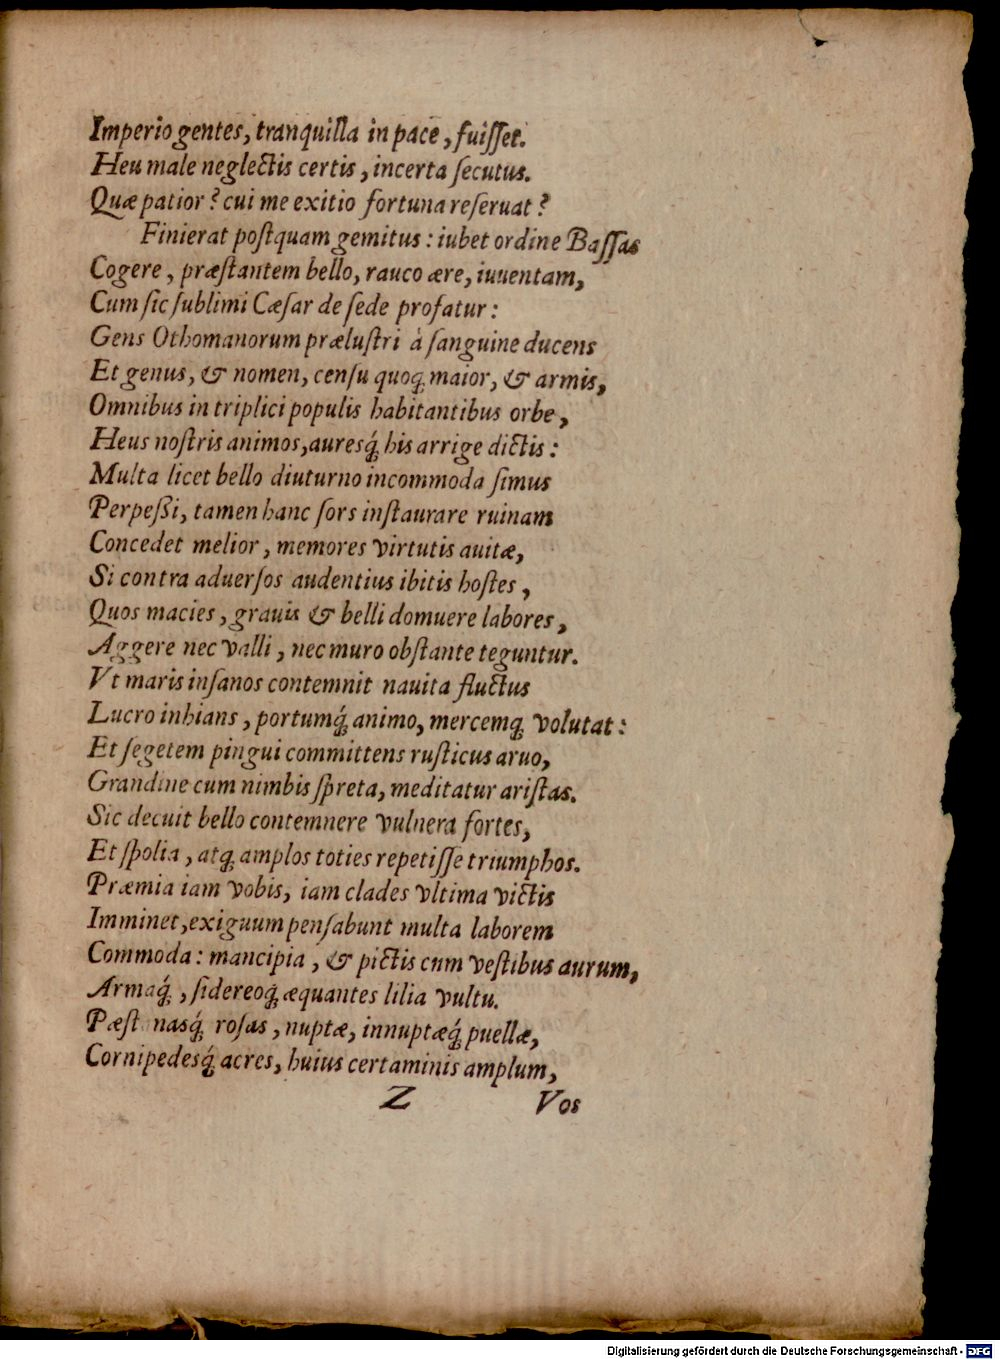 Imperio gentes, tranquilla in pace, fuiſſet.
Heu male neglectis certis, incerta ſecutus.
Quæ patior? cui me exitio fortuna reſeruat?
Finierat poſtquam gemitus: iubet ordine Baſſas
Cogere, præſtantem bello, rauco ære, iuuentam,
Cum ſic ſublimi Cæſar de ſede profatur:
Gens Othomanorum præluſtri à ſanguine ducens
Et genus, & nomen, cenſu quoq; maior, & armis,
Omnibus in triplici populis habitantibus orbe,
Heus noſtris animos, auresq́; his arrige dictis:
Multa licet bello diuturno incommoda ſimus
Perpeßi, tamen hanc ſors inſtaurare ruinam
Concedet melior, memores virtutis auitæ,
Si contra aduerſos audentius ibitis hoſtes,
Quos macies, grauis & belli domuere labores,
Aggere nec valli, nec muro obſtante teguntur.
Vt maris inſanos contemnit nauita fluctus
Lucro inhians, portumq́; animo, mercemq; volutat:
Et ſegetem pingui committens ruſticus aruo,
Grandine cum nimbis ſpreta, meditatur ariſtas.
Sic decuit bello contemnere vulnera fortes,
Et ſpolia, atq; amplos toties repetiſſe triumphos.
Præmia iam vobis, iam clades vltima victis
Imminet, exiguum penſabunt multa laborem
Commoda: mancipia, & pictis cum veſtibus aurum,
Armaq́;, ſidereoq́; æquantes lilia vultu.
Pæſt nasq́; roſas, nuptæ, innuptæq́; puellæ,
Cornipedesq́; acres, huius certaminis amplum,
Z Vos
Digitalisierung gefördert durch die Deutsche Forschungsgemeinschaft - DFG